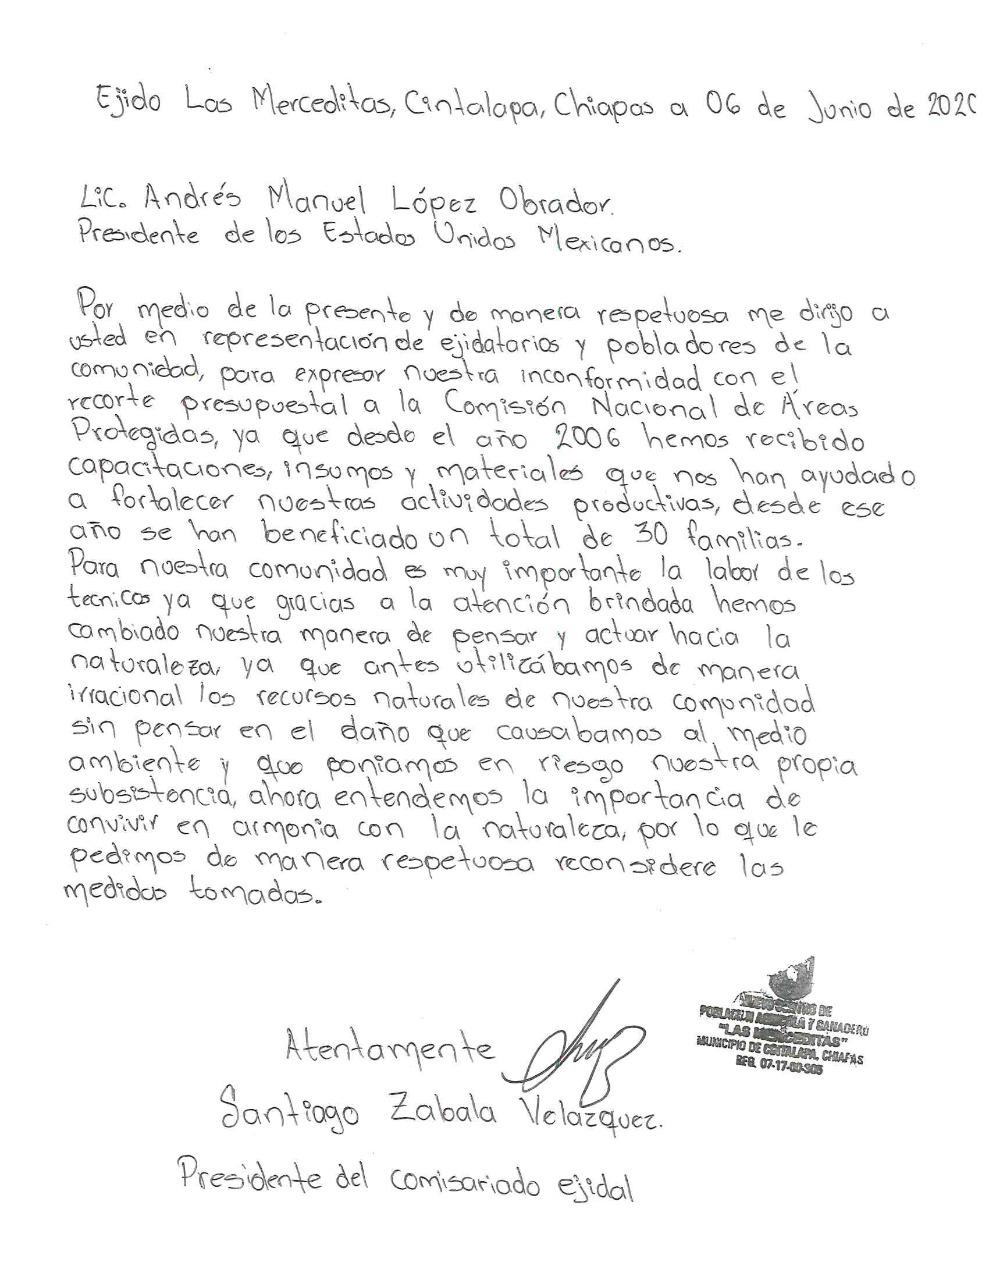 Ejido Las Merceditas, Cintalapa, Chiapas a 06 de Junio de 2020
Lic. Andrés Manuel López Obrador.
Presidente de los Estados Unidos Mexicanos.
Por medio de la presente y de manera respetuosa me dirijo a
usted en representación de ejidatarios y pobladores de la
comunidad, para expresar nuestra inconformidad con el
recorte presupuestal a la Comisión Nacional de Áreas
Protegidas, ya que desde el año 2006 hemos recibido
capacitaciones, insumos y materiales que nos han ayudado
a fortalecer nuestras actividades productivas, desde ese
año se han beneficiado un total de 30 familias.
Para nuestra comunidad es muy importante la labor de los
tecnicos ya que gracias a la atención brindada hemos
cambiado nuestra manera de pensar y actuar hacia la
naturaleza, ya que antes utilizábamos de manera
irracional los recursos naturales de nuestra comunidad
sin pensar en el daño que causabamos al medio
ambiente y que poniamos en riesgo nuestra propia
subsistencia, ahora entendemos la importancia de
convivir en armonia con la naturaleza, por lo que le
pedimos de manera respetuosa reconsidere las
medidas tomadas.
Atentamente
Santiago Zabala Velazquez.
Presidente del comisariado ejidal
NUEVO CENTRO DE
POBLACION AGRICOLA Y GANADERO
"LAS MERCEDITAS"
MUNICIPIO DE CINTALAPA, CHIAPAS
REG. 07-17-00-305